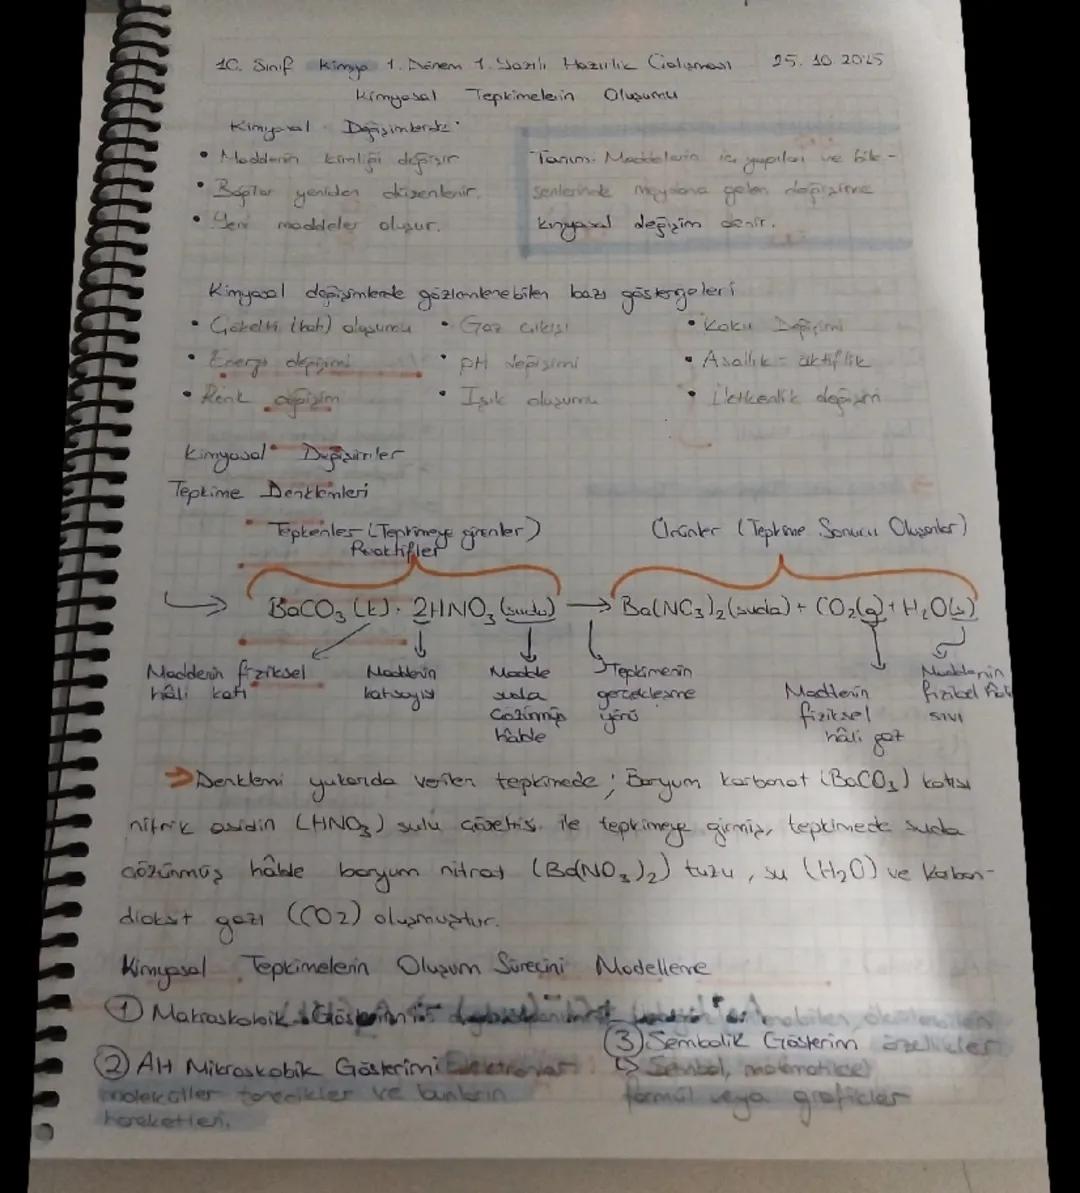 10. Sınıf Kimya 1. Dönem 1. Yazılı Hazırlık Çalışması 25.10.2025
Kimyasal Tepkimelerin Oluşumu
Kimyasal Değişimlerde:
• Maddenin kimliği değişir
• Bağlar yeniden düzenlenir.
• Yeni maddeler oluşur.
Tanım: Maddelerin iç yapıları ve bile-
şenlerinde meydana gelen değişime
kimyasal değişim denir.
Kimyasal değişimlerde gözlemlenebilen bazı göstergeleri
• Çökelti (katı) oluşumu • Gaz çıkışı • Koku Değişimi
• Enerji değişimi • pH değişimi • Asallık - aktiflik
• Renk değişim • Işık oluşumu • İletkenlik değişimi
Kimyasal Değişimler
Tepkime Denklemleri
Tepkenler (Tepkimeye girenler) Ürünler (Tepkime Sonucu Oluşanlar)
Reaktifler
BaCO₃ (k) + 2HNO₃ (suda) → Ba(NO₃)₂ (suda) + CO₂(g) + H₂O(s)
Maddenin fiziksel hâli katı
Maddenin katsayısı
Madde suda çözünmüş hâlde
Tepkimenin gerçekleşme yönü
Maddenin fiziksel hâli gaz
Maddenin fiziksel hali sıvı
→ Denklemi yukarıda verilen tepkimede; Baryum karbonat (BaCO₃) katısı
nitrik asidin (HNO₃) sulu çözeltisi ile tepkimeye girmiş, tepkimede suda
çözünmüş hâlde baryum nitrat (Ba(NO₃)₂) tuzu, su (H₂O) ve karbon-
dioksit gazı (CO2) oluşmuştur.
Kimyasal Tepkimelerin Oluşum Sürecini Modelleme
① Makroskobik Gösterim
② Alt Mikroskobik Gösterimi Elektronlar
moleküller tanecikler ve bunların
hareketleri.
③ Sembolik Gösterim özellikler
↳ Sembol, matematiksel
formül veya grafikler